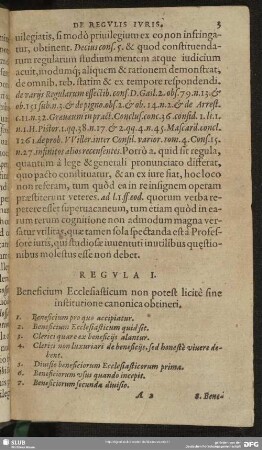 DE REGVLIS IVRIS. 3
uilegiatis, si modò priuilegium ex eo non infringa-
tur, obtinent. Decius cons. 5. & quod constituenda-
rum regularum studium mentem atque iudicium
acuit, modumq; aliquem & rationem demonstrat,
de omnib. reb. statim & ex tempore respondendi.
de varijs Regularum effectib. cons. D. Gail. 2. obs. 79. n. 13 &
ob. 151 sub n. 3 & de pigno. obs. 2. & ob. 14. n. 2. & de Arrest.
c. 11. n. 32. Graueum in pract. Concluss. conc. 36. consid. 1. li. 1.
n. 1. H. Pistor. 1. qq. 38. n. 17 & 2. qq. 4. n. 45. Mascard. concl.
1261. de prob. VViller. inter Consil. varior. tom. 4. Cons. 15.
n. 27. infinitos alios recensente. Porrò à quid sit regula,
quantum à lege & generali pronunciato differat,
quo pacto constituatur, & an ex iure fiat, hoc loco
non referam, tum quòd ea in re insignem operam
præstiterunt veteres. ad l. 1. ff. eod. quorum verba re-
petere esset superuacaneum, tum etiam quòd in ea-
rum rerum cognitione non admodum magna ver-
satur vtilitas, quæ tamen sola spectanda est à Profes-
sore iuris, qui studiosæ iuuentuti inutilibus quæstio-
nibus molestus esse non debet.
REGVLA I.
Beneficium Ecclesiasticum non potest licitè sine
institutione canonica obtineri.
1. Beneficium pro quo accipiatur.
2. Beneficium Ecclesiasticum quid sit.
3. Clerici quare ex beneficijs alantur.
4. Clerici non luxuriari de beneficijs, sed honestè viuere de-
bent.
5. Diuisio beneficiorum Ecclesiasticorum prima.
6. Beneficiorum vsus quando inceperit.
7. Beneficiorum secunda diuisio.
A 2 8. Bene-
SLUB